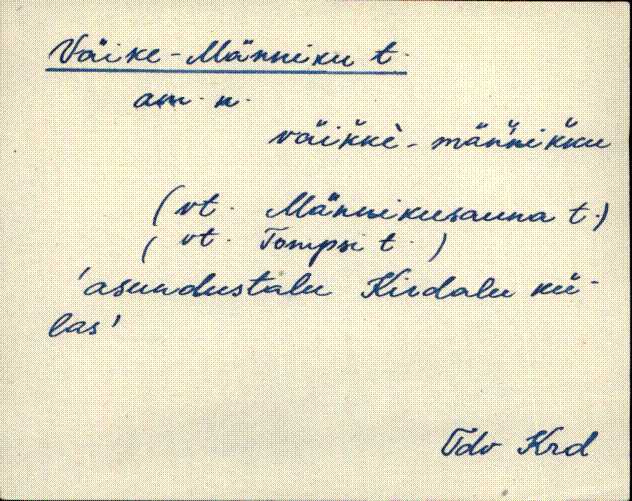 Väike-Männiku t.
am. n.
väik̆k̆è-männ̆ik̆k̆u
(vt. Männikusauna t.)
(vt. Tompsi t.)
'asundustalu Kirdalu kü-
las'
Tdv Krd